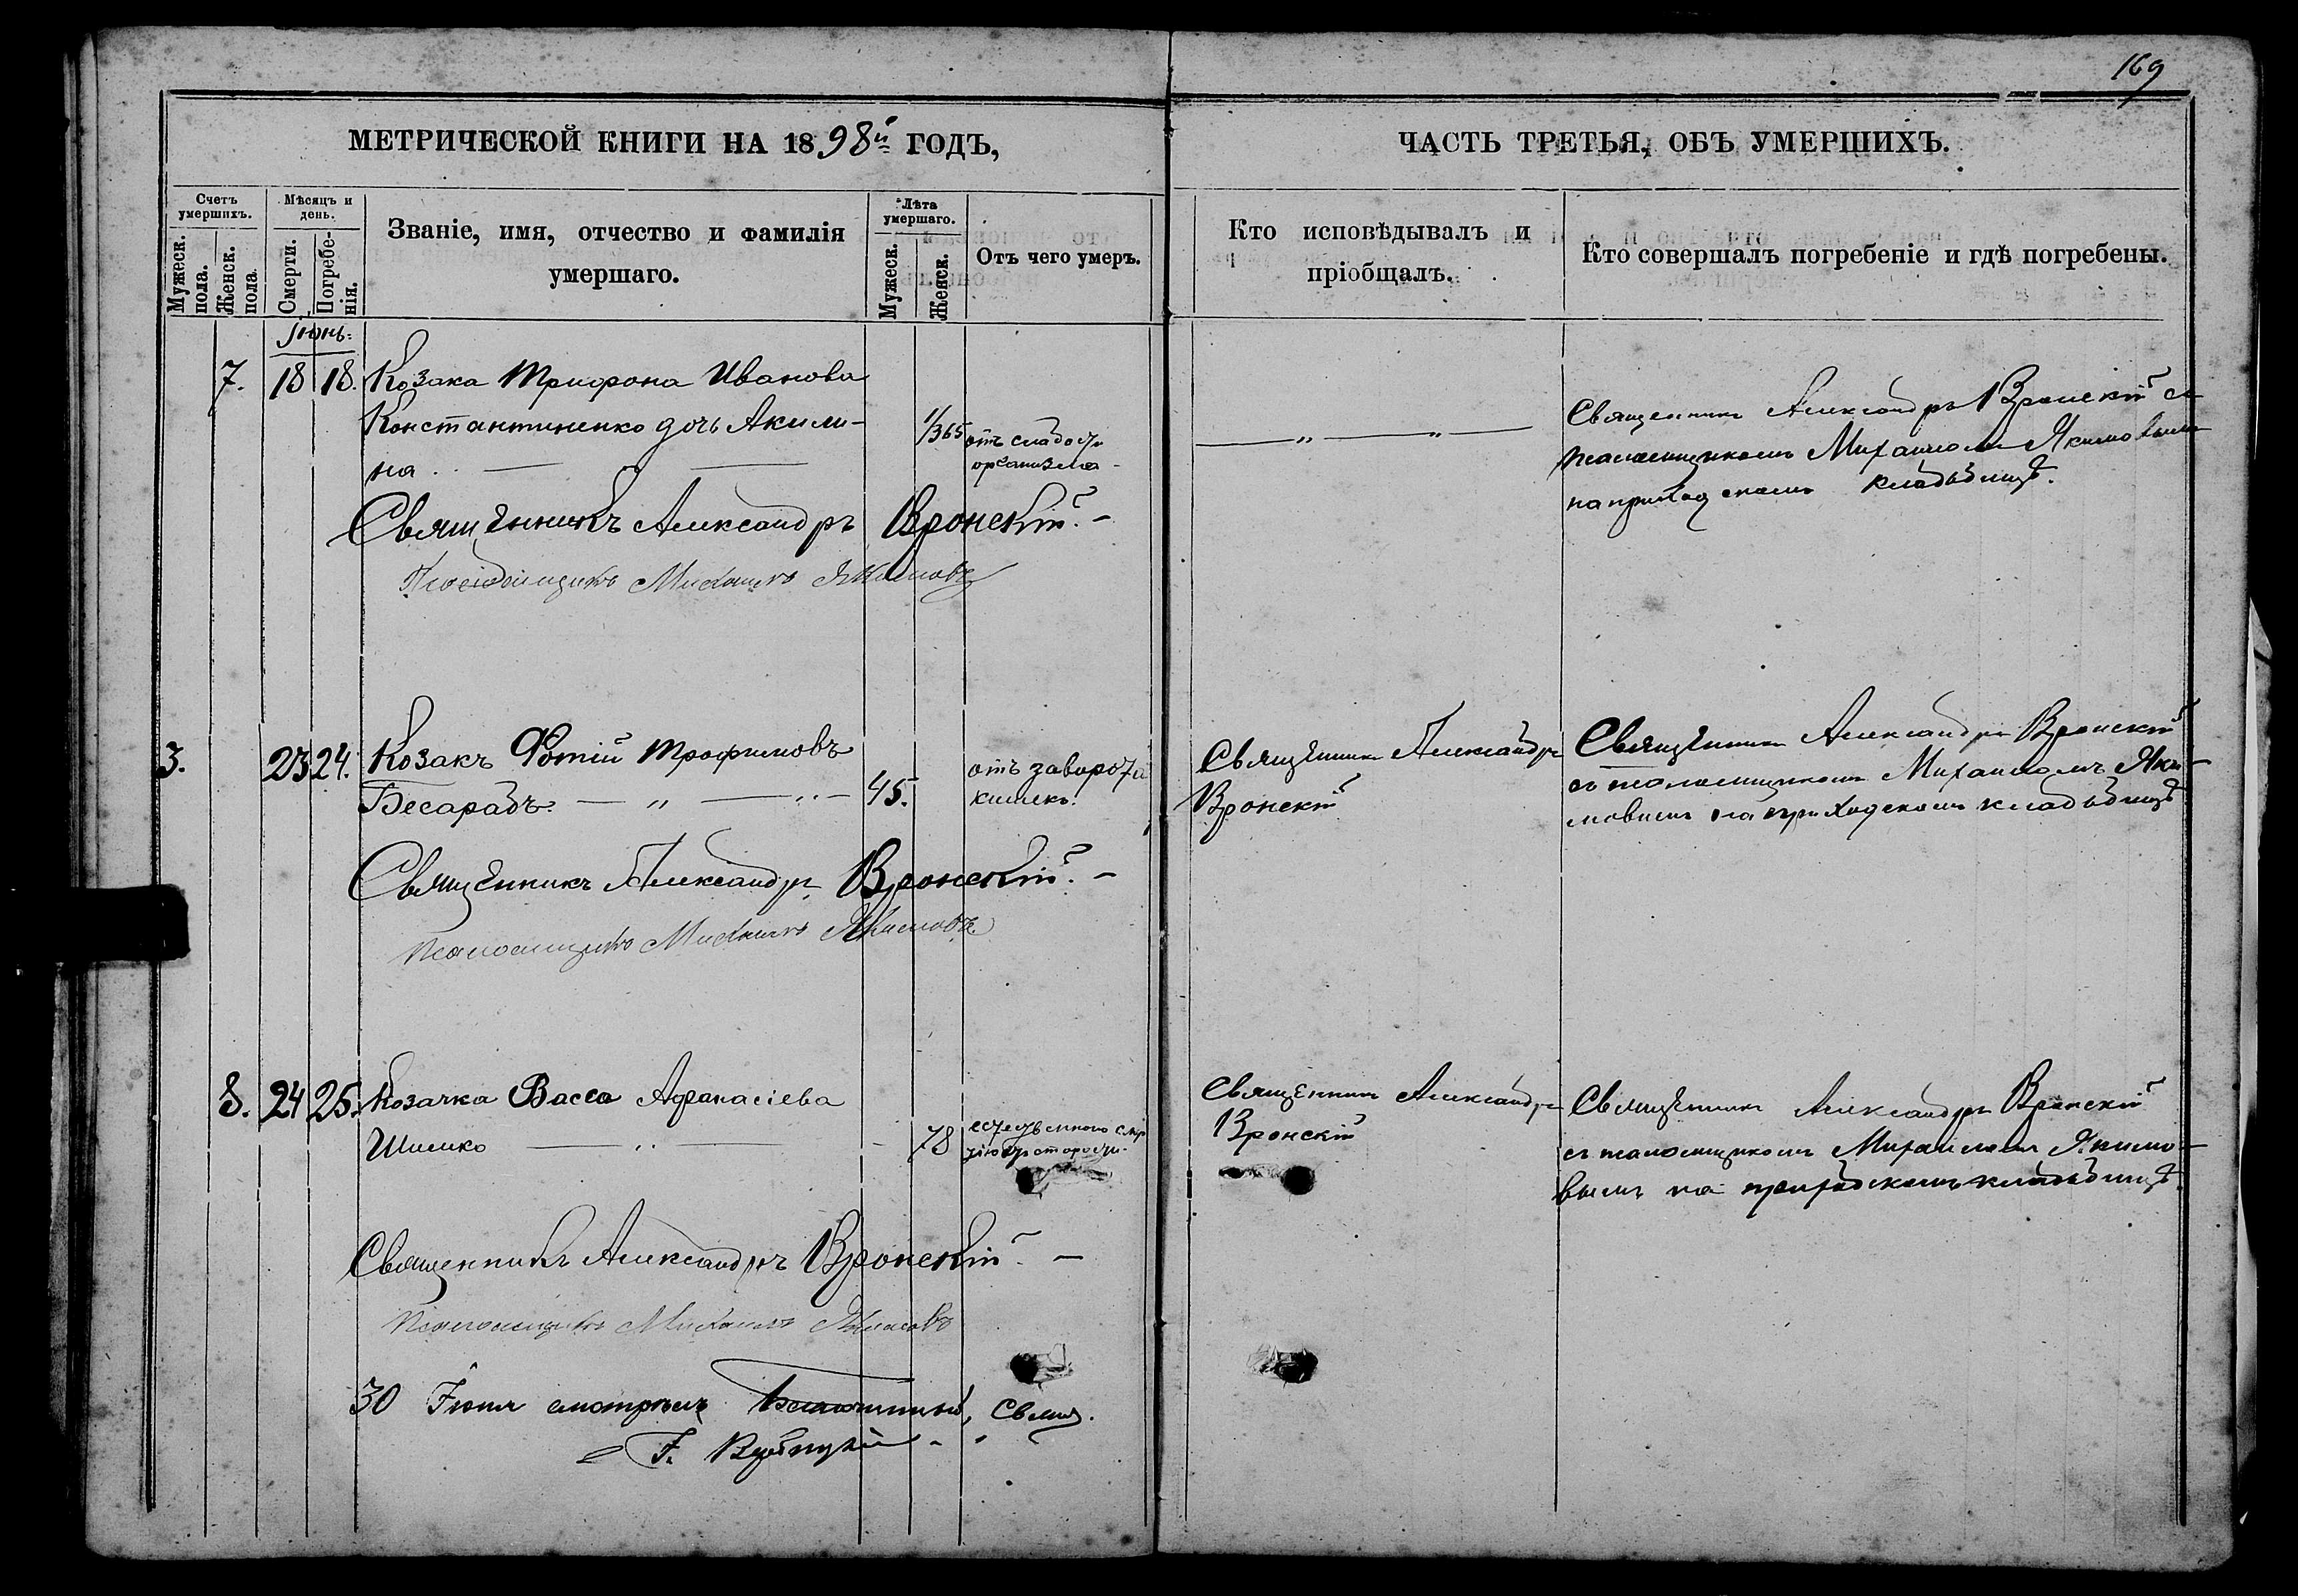 169
МЕТРИЧЕСКОЙ КНИГИ НА 1898й ГОДЪ,
ЧАСТЬ ТРЕТЬЯ, ОБЪ УМЕРШИХЪ.
Счетъ умершихъ.
Мужеск. пола.
Женск. пола.
Мѣсяцъ и день.
Смерти.
Погребенія.
Званіе, имя, отчество и фамилія
умершаго.
Лѣта умершаго.
Мужеск.
Женск.
Отъ чего умеръ.
Кто исповѣдывалъ и
пріобщалъ.
Кто совершалъ погребеніе и гдѣ погребены.
Іюнь:
7. 18 18. Козака Трифона Иванова
Константиненко дочь Акили-
на
1/365 отъ слабости
организма
Священникъ Александръ Вронскій съ
псаломщикомъ Михаиломъ Якимовымъ
на приходскомъ кладбищѣ.
Священникъ Александръ Вронскій.
Псаломщикъ Михаилъ Якимовъ
3. 23 24. Козакъ Фотій Трофимовъ
Бесарабъ. 45.
отъ заворота
кишекъ.
Священникъ Александръ
Вронскій
Священникъ Александръ Вронскій
съ псаломщикомъ Михаиломъ Яки-
мовымъ на приходскомъ кладбищѣ
Священникъ Александръ Вронскій.
Псаломщикъ Михаилъ Якимовъ
8. 24 25. Козачка Васса Афанасіева
Шишко 78
Священникъ Александръ
Вронскій
Священникъ Александръ Вронскій
съ псаломщикомъ Михаиломъ Якимо-
вымъ на приходскомъ кладбищѣ.
Священникъ Александръ Вронскій.
Псаломщикъ Михаилъ Якимовъ
30 Іюня смотрѣлъ Благочинный, Свящ.